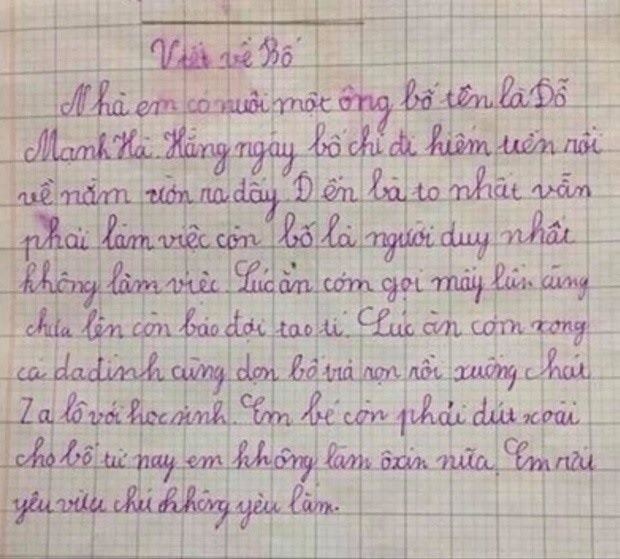 Viết về Bố
Nhà em có nuôi một ông bố tên là Đỗ
Mạnh Hà. Hằng ngày bố chỉ đi kiếm tiền rồi
về nằm ườn ra đấy. Đến bà to nhất vẫn
phải làm việc còn bố là người duy nhất
không làm việc. Lúc ăn cơm gọi mấy lần cũng
chưa lên còn bảo đợi tao tí. Lúc ăn cơm xong
cả da đình cũng dọn bố trả rọn rồi xuống chát
Za lô với học sinh. Em bé còn phải dút xoài
cho bố từ nay em không làm ôxin nữa. Em rất
yêu
chứ không yêu lắm.